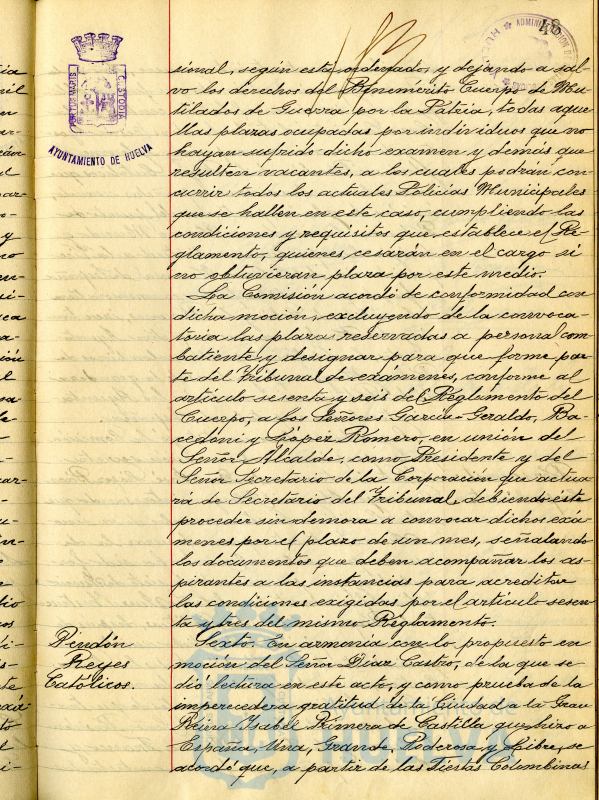 48
ADMINISTRACION D
PORTUS MARIS
CUSTODIA
AYUNTAMIENTO DE HUELVA
sional, según está ordenado, y dejando a sal-
vo los derechos del Benemérito Cuerpo de Mu-
tilados de Guerra por la Patria, todas aque-
llas plazas ocupadas por individuos que no
hayan sufrido dicho examen y demás que
resulten vacantes, a las cuales podrán con-
currir todos los actuales Policías Municipales
que se hallen en este caso, cumpliendo las
condiciones y requisitos que establece el Re-
glamento, quienes cesarán en el cargo si
no obtuvieran plaza por este medio.
La Comisión acordó de conformidad con
dicha moción, excluyendo de la convoca-
toria las plazas reservadas a personal com-
batiente, y designar para que forme par-
te del Tribunal de exámenes, conforme al
artículo sesenta y seis del Reglamento del
Cuerpo, a los Señores García-Geraldo, Ba-
cedoni y López Romero, en unión del
Señor Alcalde, como Presidente y del
Señor Secretario de la Corporación que actua-
rá de Secretario del Tribunal, debiendo éste
proceder sin demora a convocar dichos exá-
menes por el plazo de un mes, señalando
los documentos que deben acompañar los as-
pirantes a las instancias para acreditar
las condiciones exigidas por el artículo sesen-
ta y tres del mismo Reglamento.
Pendón
Reyes
Católicos.
Sexto. En armonía con lo propuesto en
moción del Señor Díaz Castro, de la que se
dió lectura en este acto, y como prueba de la
imperecedera gratitud de la Ciudad a la Gran
Reina Isabel Primera de Castilla que hizo a
España, Una, Grande, Poderosa y Libre, se
acordó que, a partir de las Fiestas Colombinas
HUELVA